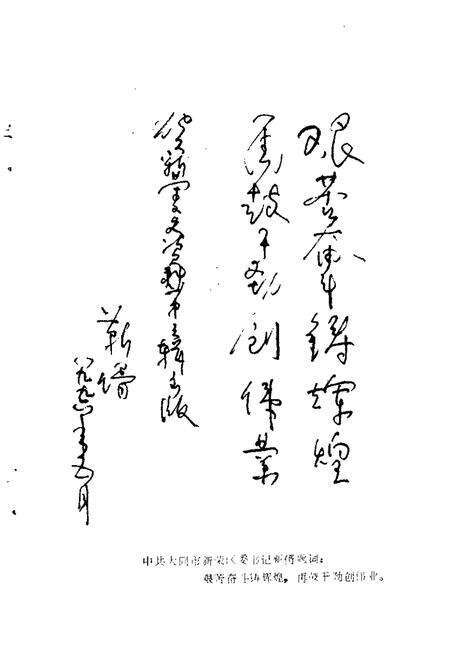 艰苦奋斗铸辉煌
再鼓干劲创伟业
新荣文史资料第辑出版
靳
九九六年五月
中共大同市新荣区委书记靳题词:
艰苦奋斗铸辉煌，再鼓干劲创伟业。